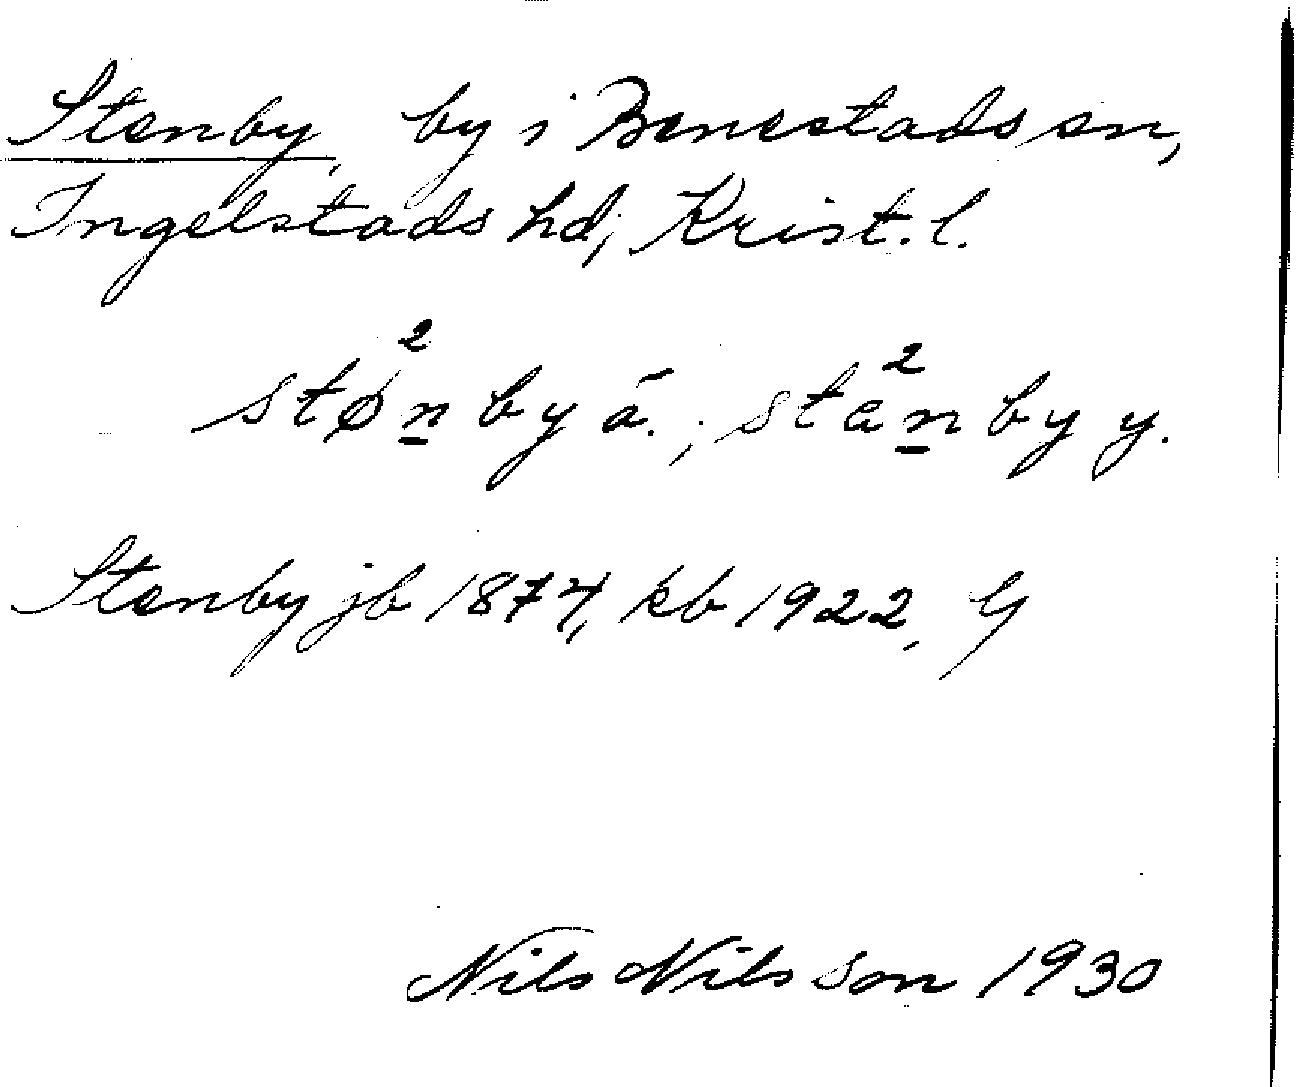 Stenby, by i Benestads sn,
Ingelstads hd, Krist. l.
stø²n̲by ä.; stä²n̲by y.
Stenby jb 1874, kb 1922, G
Nils Nilsson 1930